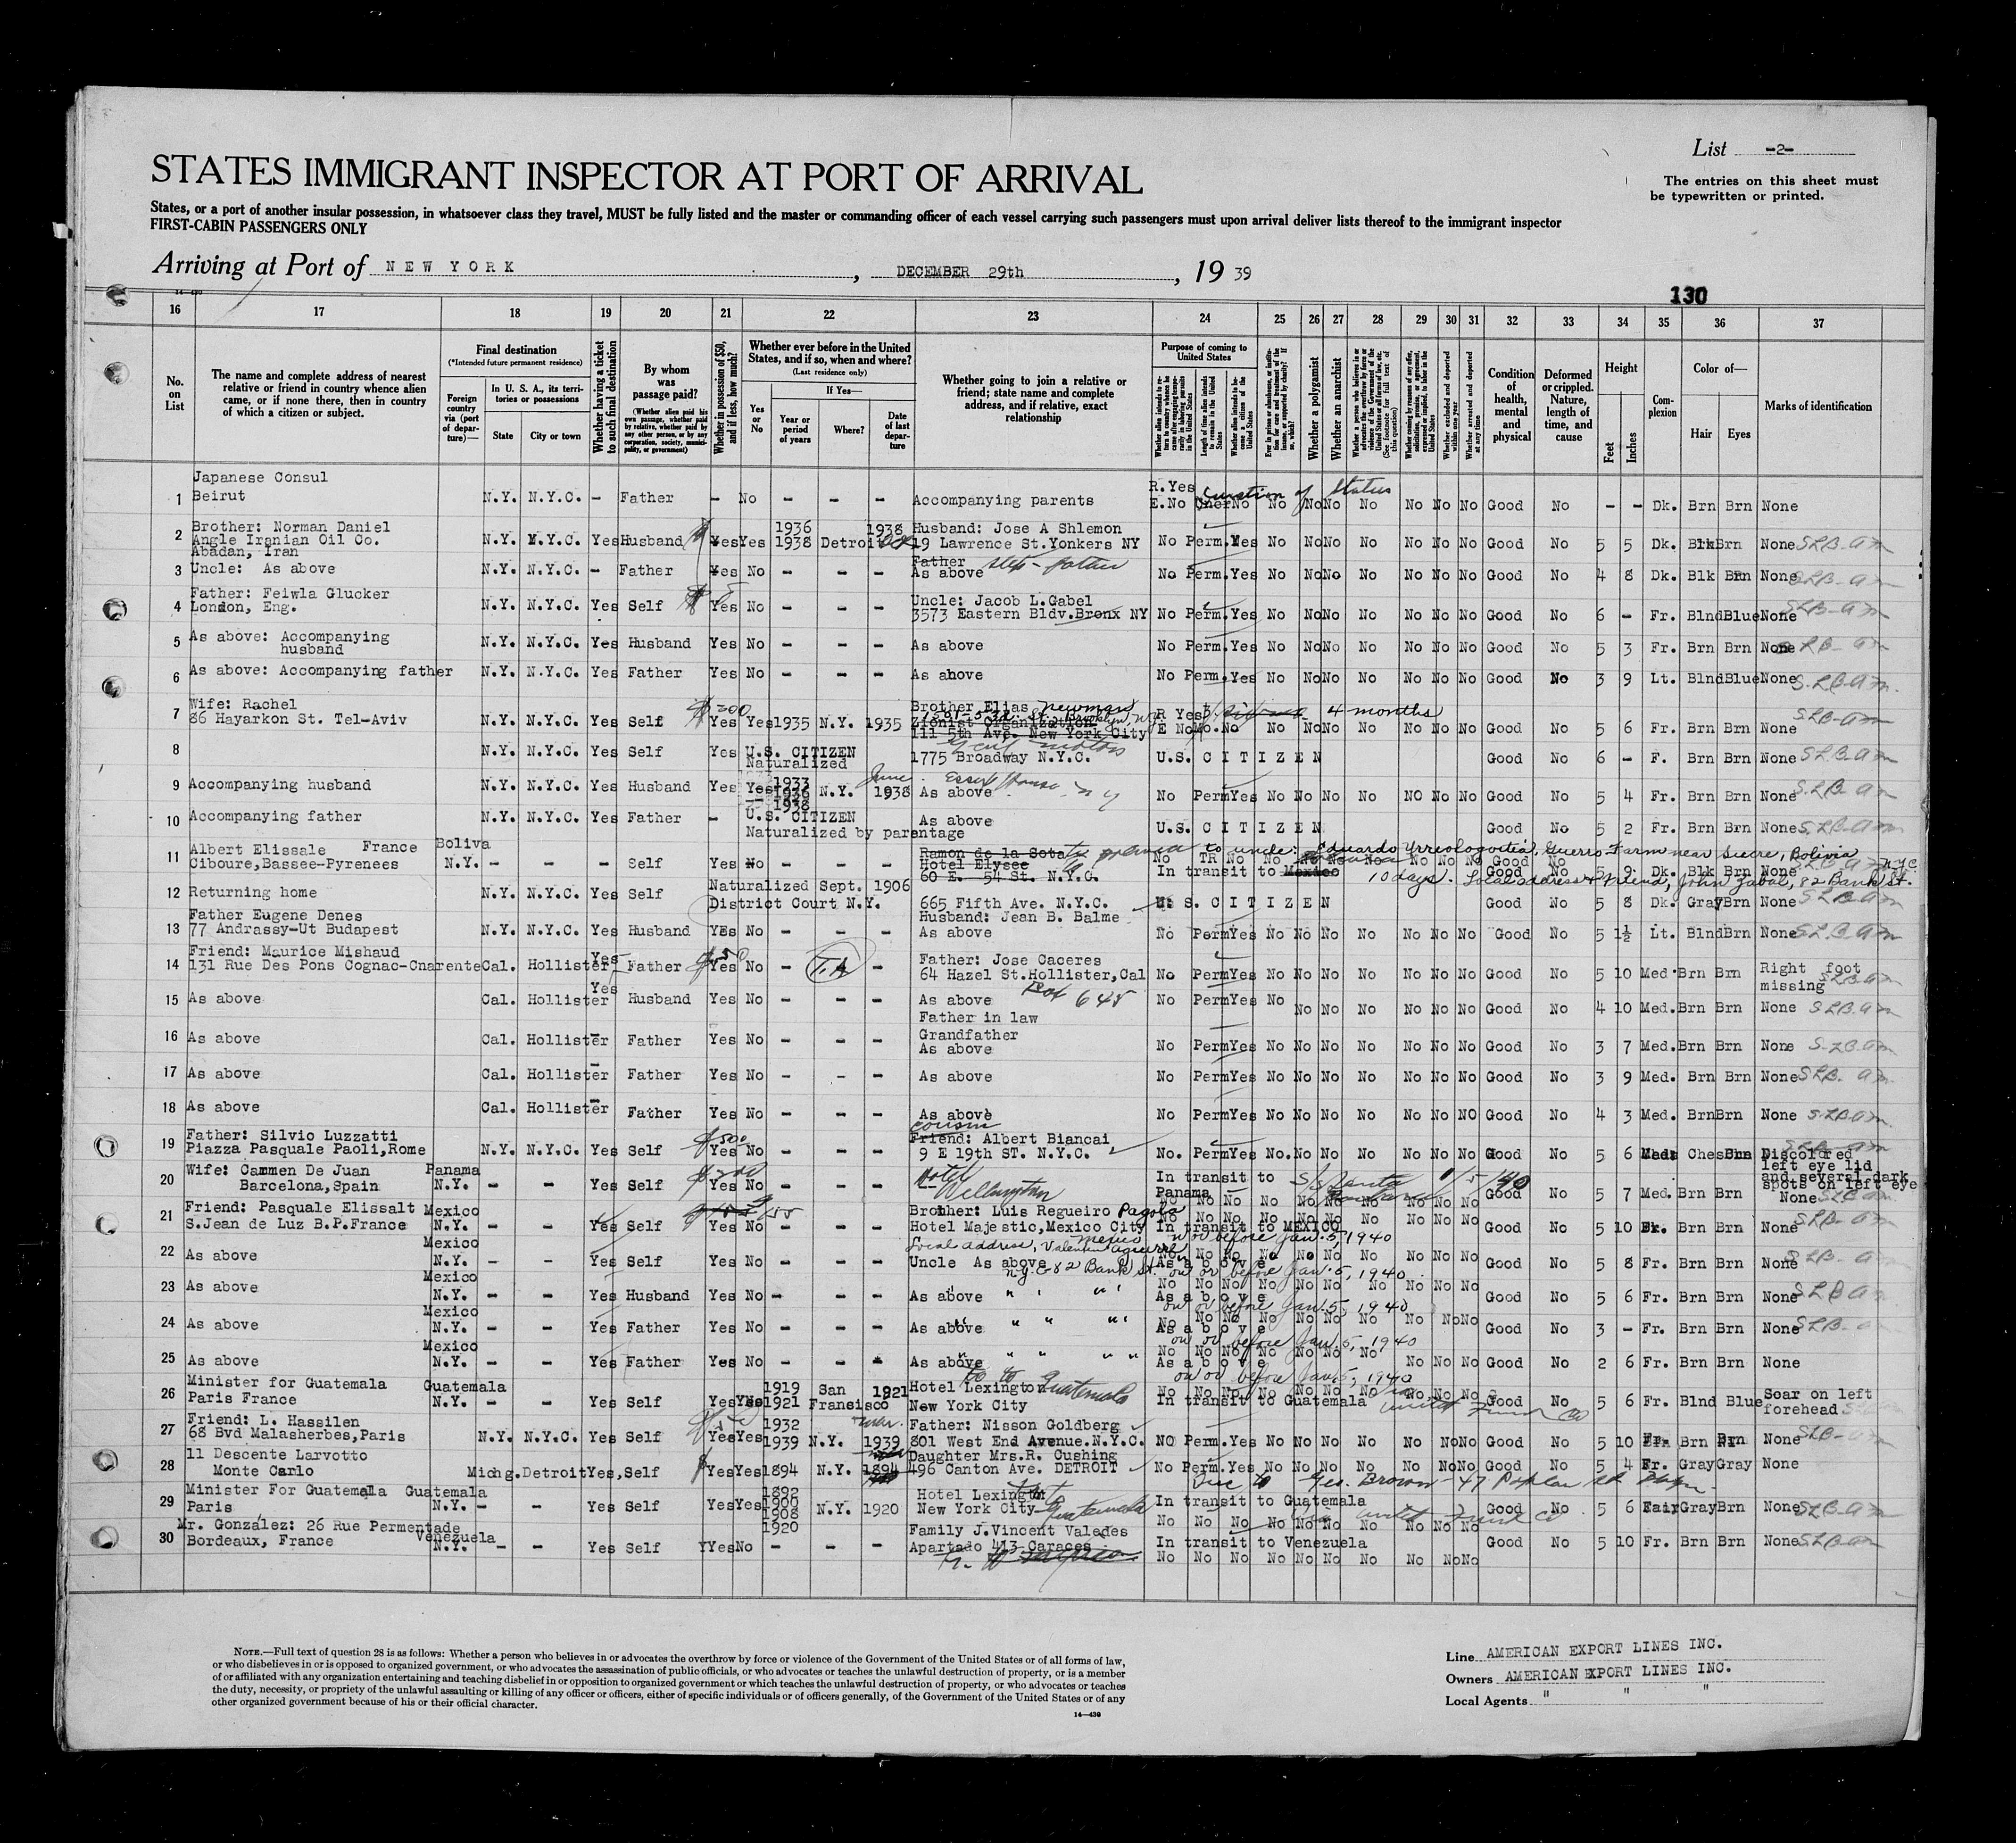 List -2-
STATES IMMIGRANT INSPECTOR AT PORT OF ARRIVAL
The entries on this sheet must
be typewritten or printed.
States, or a port of another insular possession, in whatsoever class they travel, MUST be fully listed and the master or commanding officer of each vessel carrying such passengers must upon arrival deliver lists thereof to the immigrant inspector
FIRST-CABIN PASSENGERS ONLY
Arriving at Port of NEW YORK, DECEMBER 29th, 19 39
14-430
130
16 17 18 19 20 21 22 23 24 25 26 27 28 29 30 31 32 33 34 35 36 37
No. on List
The name and complete address of nearest relative or friend in country whence alien came, or if none there, then in country of which a citizen or subject.
Final destination
(*Intended future permanent residence)
Foreign country via (port of departure)—
In U. S. A., its territories or possessions
State
City or town
Whether having a ticket to such final destination
By whom was passage paid?
(Whether alien paid his own passage, whether paid by relative, whether paid by any other person, or by any corporation, society, municipality, or government)
Whether in possession of $50, and if less, how much?
Whether ever before in the United States, and if so, when and where?
(Last residence only)
Yes or No
If Yes—
Year or period of years
Where?
Date of last departure
Whether going to join a relative or friend; state name and complete address, and if relative, exact relationship
Purpose of coming to United States
Length of time alien intends to remain in the United States
Whether alien intends to become a citizen of the United States
Whether a polygamist
Whether an anarchist
Whether excluded and deported within one year
Whether arrested and deported at any time
Condition of health, mental and physical
Deformed or crippled. Nature, length of time, and cause
Height
Feet
Inches
Complexion
Color of—
Hair
Eyes
Marks of identification
Japanese Consul R.Yes
1 Beirut N.Y. N.Y.C. - Father - No - - - Accompanying parents E.No No No No No No No No No Good No - - Dk. Brn Brn None
Brother: Norman Daniel 1936 1938 Husband: Jose A Shlemon
2 Angle Iranian Oil Co. N.Y. N.Y.C. Yes Husband Yes Yes 1938 Detroit 19 Lawrence St.Yonkers NY No Perm. Yes No No No No No No No Good No 5 5 Dk. Blk Brn None
Abadan, Iran
Father step-father
3 Uncle: As above N.Y. N.Y.C. - Father Yes No - - - As above No Perm. Yes No No No No No No No Good No 4 8 Dk. Blk Brn None
Father: Feiwla Glucker Uncle: Jacob L.Gabel
4 London, Eng. N.Y. N.Y.C. Yes Self Yes No - - - 3573 Eastern Bldv.Bronx NY No Perm. Yes No No No No No No No Good No 6 - Fr. Blnd Blue None
5 As above: Accompanying N.Y. N.Y.C. Yes Husband Yes No - - - As above No Perm. Yes No No No No No No No Good No 5 3 Fr. Brn Brn None
husband
6 As above: Accompanying father N.Y. N.Y.C. Yes Father Yes No - - - As above No Perm. Yes No No No No No No No Good No 3 9 Lt. Blnd Blue None
Wife: Rachel $200 Brother Elias Newman
7 86 Hayarkon St. Tel-Aviv N.Y. N.Y.C. Yes Self Yes Yes 1935 N.Y. 1935 Zionist Organization R Yes 4 months
111 5th Ave. New York City E No No No No No No No No No Good No 5 6 Fr. Brn Brn None
8 N.Y. N.Y.C. Yes Self Yes U.S. CITIZEN 1775 Broadway N.Y.C. U.S. CITIZEN Good No 6 - F. Brn Brn None
Naturalized
9 Accompanying husband N.Y. N.Y.C. Yes Husband Yes Yes 1933 1936 1938 N.Y. June 1938 As above Essex House N Y No Perm Yes No No No No No No No Good No 5 4 Fr. Brn Brn None
10 Accompanying father N.Y. N.Y.C. Yes Father - U.S. CITIZEN As above U.S. CITIZEN Good No 5 2 Fr. Brn Brn None
Naturalized by parentage
Albert Elissale France Boliva Ramon de la Sota to uncle: Guerro Farm near Sucre, Bolivia
11 Ciboure,Bassee-Pyrenees N.Y. - - - Self Yes No - - - Hotel Elysee No TR No No No No No No Good No 5 9 Dk. Blk Brn None
60 E. 54 St. N.Y.C. In transit to Mexico 10 days. Local address friend, John Zabal, 82 Bank St. N.Y.C.
12 Returning home N.Y. N.Y.C. Yes Self Naturalized Sept. 1906 665 Fifth Ave. N.Y.C. U.S. CITIZEN Good No 5 8 Dk. Gray Brn None
District Court N.Y.
Father Eugene Denes Husband: Jean B. Balme
13 77 Andrassy-Ut Budapest N.Y. N.Y.C. Yes Husband Yes No - - - As above No Perm Yes No No No No No No No Good No 5 1½ Lt. Blnd Brn None
Friend: Maurice Mishaud Yes $50 Father: Jose Caceres Right foot
14 131 Rue Des Pons Cognac-Cnarente Cal. Hollister Father Yes No - T.A - 64 Hazel St.Hollister,Cal No Perm Yes No No No No No No No Good No 5 10 Med. Brn Brn missing
Yes Box 645
15 As above Cal. Hollister Husband Yes No - - - As above No Perm Yes No No No No No No No Good No 4 10 Med. Brn Brn None
Father in law
16 As above Cal. Hollister - Father Yes No - - - Grandfather No Perm Yes No No No No No No No Good No 3 7 Med. Brn Brn None
As above
17 As above Cal. Hollister - Father Yes No - - - As above No Perm Yes No No No No No No No Good No 3 9 Med. Brn Brn None
18 As above Cal. Hollister - Father Yes No - - - As above No Perm Yes No No No No No No No Good No 4 3 Med. Brn Brn None
Father: Silvio Luzzatti $500 cousin Friend: Albert Biancai
19 Piazza Pasquale Paoli,Rome N.Y. N.Y.C. Yes Self Yes No - - - 9 E 19th ST. N.Y.C. No. Perm Yes No. No No No No No No Good No 5 6 Discolored
left eye lid
and several dark
spots on left eye
Wife: Cammen De Juan Panama $200 Hotel In transit to
20 Barcelona,Spain N.Y. - - Yes Self Yes No - - - Wellington Panama 1/5/40 Good No 5 7 Med. Brn Brn None
Friend: Pasquale Elissalt Mexico Brother: Luis Regueiro Pagola
21 S.Jean de Luz B.P.France N.Y. - - Yes Self Yes No - - - Hotel Majestic,Mexico City In transit to MEXICO Good No 5 10 Brn Brn None
Mexico Mexico on or before Jan. 5, 1940
Local address, Valentin Aguirre
22 As above N.Y. - - Yes Self Yes No - - - Uncle As above As above Good No 5 8 Fr. Brn Brn None
N.Y.C. 82 Bank St. on or before Jan. 5, 1940
Mexico
23 As above N.Y. - - Yes Husband Yes No - - - As above " " " As above Good No 5 6 Fr. Brn Brn None
on or before Jan. 5, 1940
Mexico
24 As above N.Y. - - Yes Father Yes No - - - As above " " " As above Good No 3 - Fr. Brn Brn None
on or before Jan. 5, 1940
Mexico
25 As above N.Y. - - Yes Father Yes No - - - As above " " " As above Good No 2 6 Fr. Brn Brn None
on or before Jan. 5, 1940
Minister for Guatemala Guatemala 1919 San 1921 Hotel Lexington Guatemala
26 Paris France N.Y. - - Yes Self Yes Yes 1921 Fransisco New York City In transit to Guatemala Good No 5 6 Fr. Blnd Blue Scar on left
forehead
Friend: L. Hassilen 1932 Father: Nisson Goldberg
27 68 Bvd Malasherbes,Paris N.Y. N.Y.C. Yes Self Yes Yes 1939 N.Y. 1939 801 West End Avenue.N.Y.C. NO Perm. Yes No No No No No No No Good No 5 10 Fr. Brn Brn None
11 Descente Larvotto Daughter Mrs.R. Cushing
28 Monte Carlo Michg. Detroit Yes, Self Yes Yes 1894 N.Y. 1894 496 Canton Ave. DETROIT No Perm. Yes No No No No No No No Good No 5 4 Fr. Gray Gray None
Geo. Brown - 47 Poplar St
Minister For Guatemala Guatemala 1892 Hotel Lexington
29 Paris N.Y. - - Yes Self Yes Yes 1900 1908 1920 N.Y. 1920 New York City Guatemala In transit to Guatemala Good No 5 6 Fair Gray Brn None
Mr. González: 26 Rue Permentade Venezuela Family J.Vincent Valedes
30 Bordeaux, France N.Y. - - Yes Self Yes No - - - Apartado 413 Caraces In transit to Venezuela Good No 5 10 Fr. Brn Brn None
No No No No No No No No No No
NOTE.—Full text of question 28 is as follows: Whether a person who believes in or advocates the overthrow by force or violence of the Government of the United States or of all forms of law,
or who disbelieves in or is opposed to organized government, or who advocates the assassination of public officials, or who advocates or teaches the unlawful destruction of property, or is a member
of or affiliated with any organization entertaining and teaching disbelief in or opposition to organized government or which teaches the unlawful destruction of property, or who advocates or teaches
the duty, necessity, or propriety of the unlawful assaulting or killing of any officer or officers, either of specific individuals or of officers generally, of the Government of the United States or of any
other organized government because of his or their official character.
14-430
Line AMERICAN EXPORT LINES INC.
Owners AMERICAN EXPORT LINES INC.
Local Agents " " "